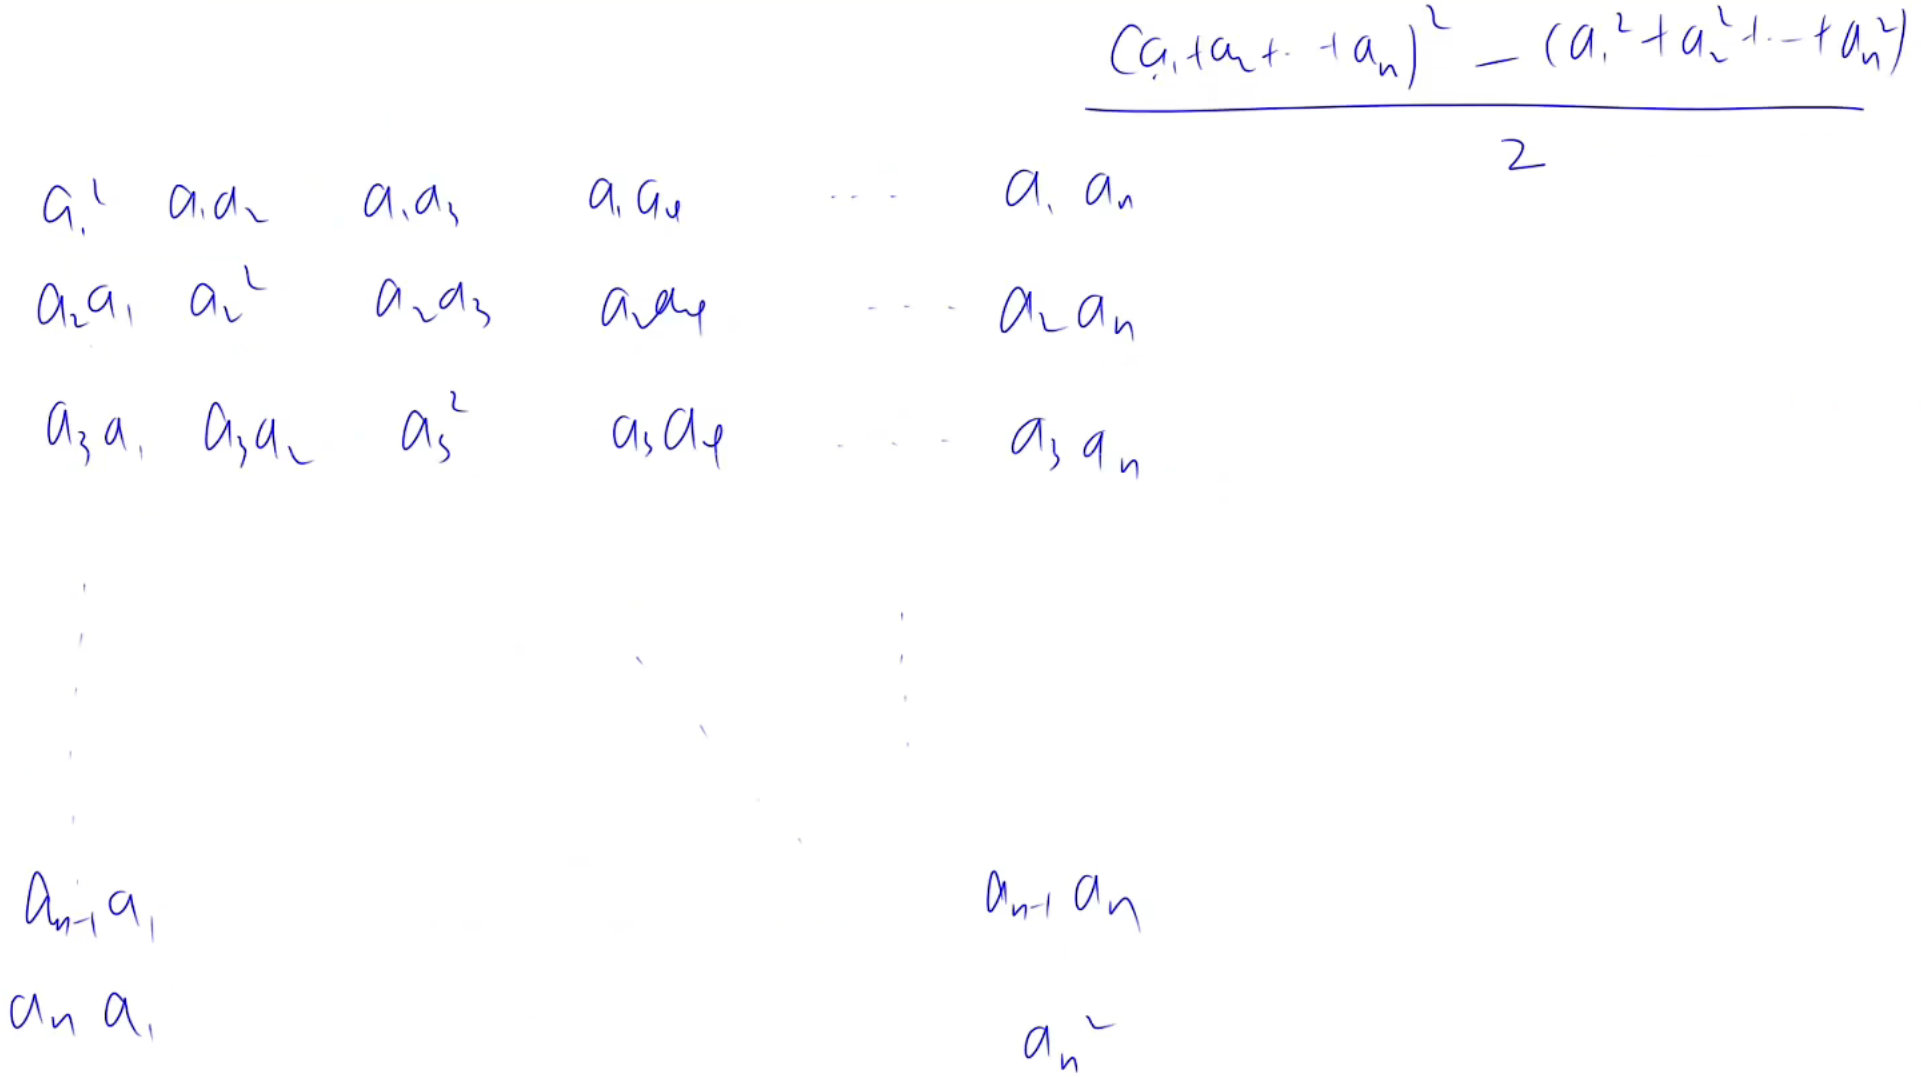 (a₁+a₂+··+aₙ)² − (a₁²+a₂²+··−+aₙ²)
2
a₁² a₁a₂ a₁a₃ a₁a₄ ··· a₁ aₙ
a₂a₁ a₂² a₂a₃ a₂a₄ ···· a₂ aₙ
a₃a₁ a₃a₂ a₃² a₃a₄ ···· a₃ aₙ
aₙ₋₁a₁ aₙ₋₁ aₙ
aₙ a₁ aₙ²